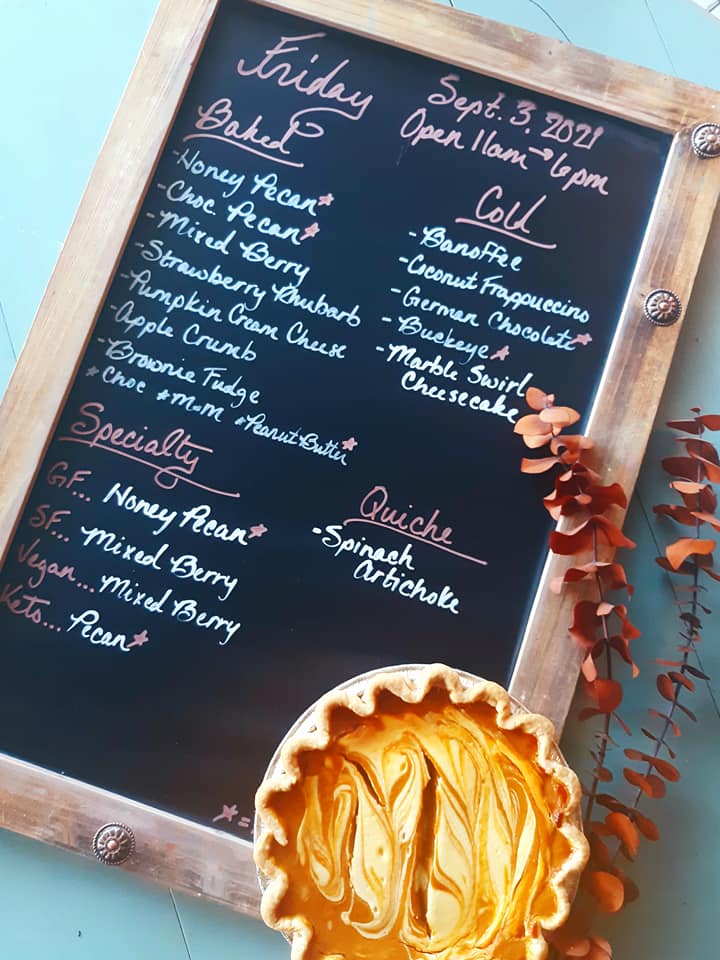 Friday
Sept. 3, 2021
Open 11am → 6pm
Baked
-Honey Pecan*
-Choc. Pecan*
-Mixed Berry
-Strawberry Rhubarb
-Pumpkin Cream Cheese
-Apple Crumb
-Brownie Fudge
*Choc *M&M *Peanut Butter*
Cold
-Banoffee
-Coconut Frappuccino
-German Chocolate*
-Buckeye*
-Marble Swirl
Cheesecake
Specialty
GF... Honey Pecan*
SF... Mixed Berry
Vegan... Mixed Berry
Keto... Pecan*
Quiche
-Spinach
Artichoke
*=